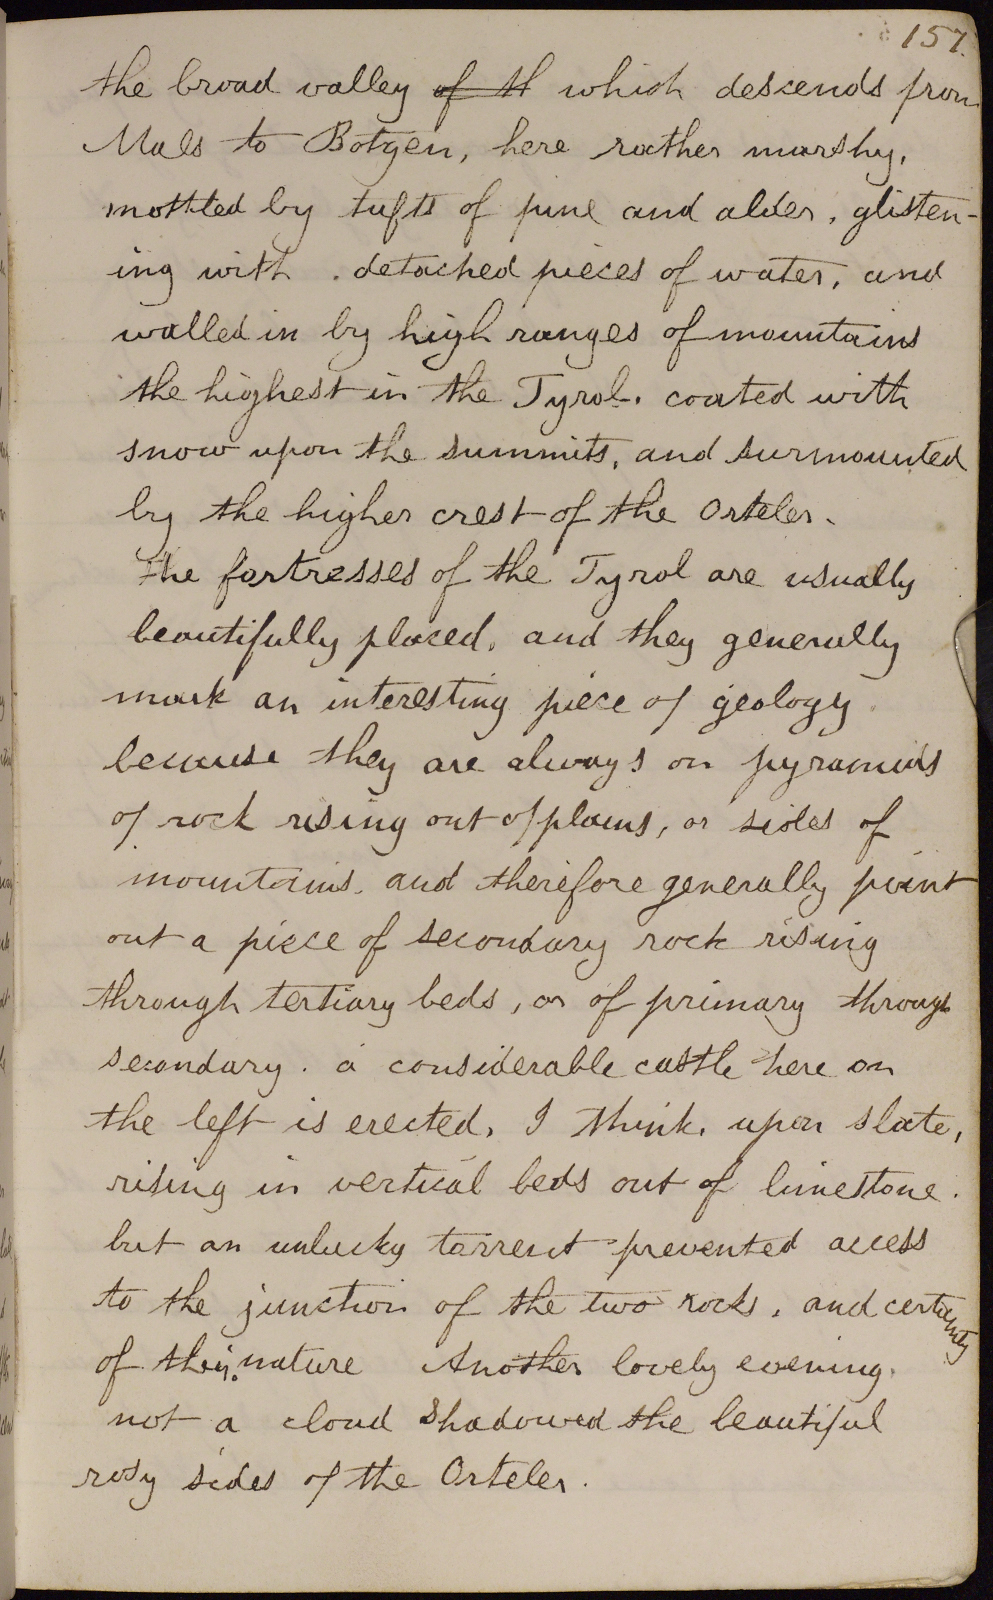 157.
the broad valley of th which descends from
Mals to Botzen, here rather marshy,
mottled by tufts of pine and alder, glisten-
ing with . detached pieces of water, and
walled in by high ranges of mountains
the highest in the Tyrol. coated with
snow upon the summits, and surmounted
by the higher crest of the Orteler.
The fortresses of the Tyrol are usually
beautifully placed, and they generally
mark an interesting piece of geology
because they are always on pyramids
of rock rising out of plains, or sides of
mountains. and therefore generally point
out a piece of secondary rock rising
through tertiary beds, or of primary through
secondary. a considerable castle here on
the left is erected, I think, upon slate,
rising in vertical beds out of limestone.
but an unlucky torrent prevented access
to the junction of the two rocks, and certainty
of their nature Another lovely evening.
not a cloud shadowed the beautiful
rosy sides of the Orteler.